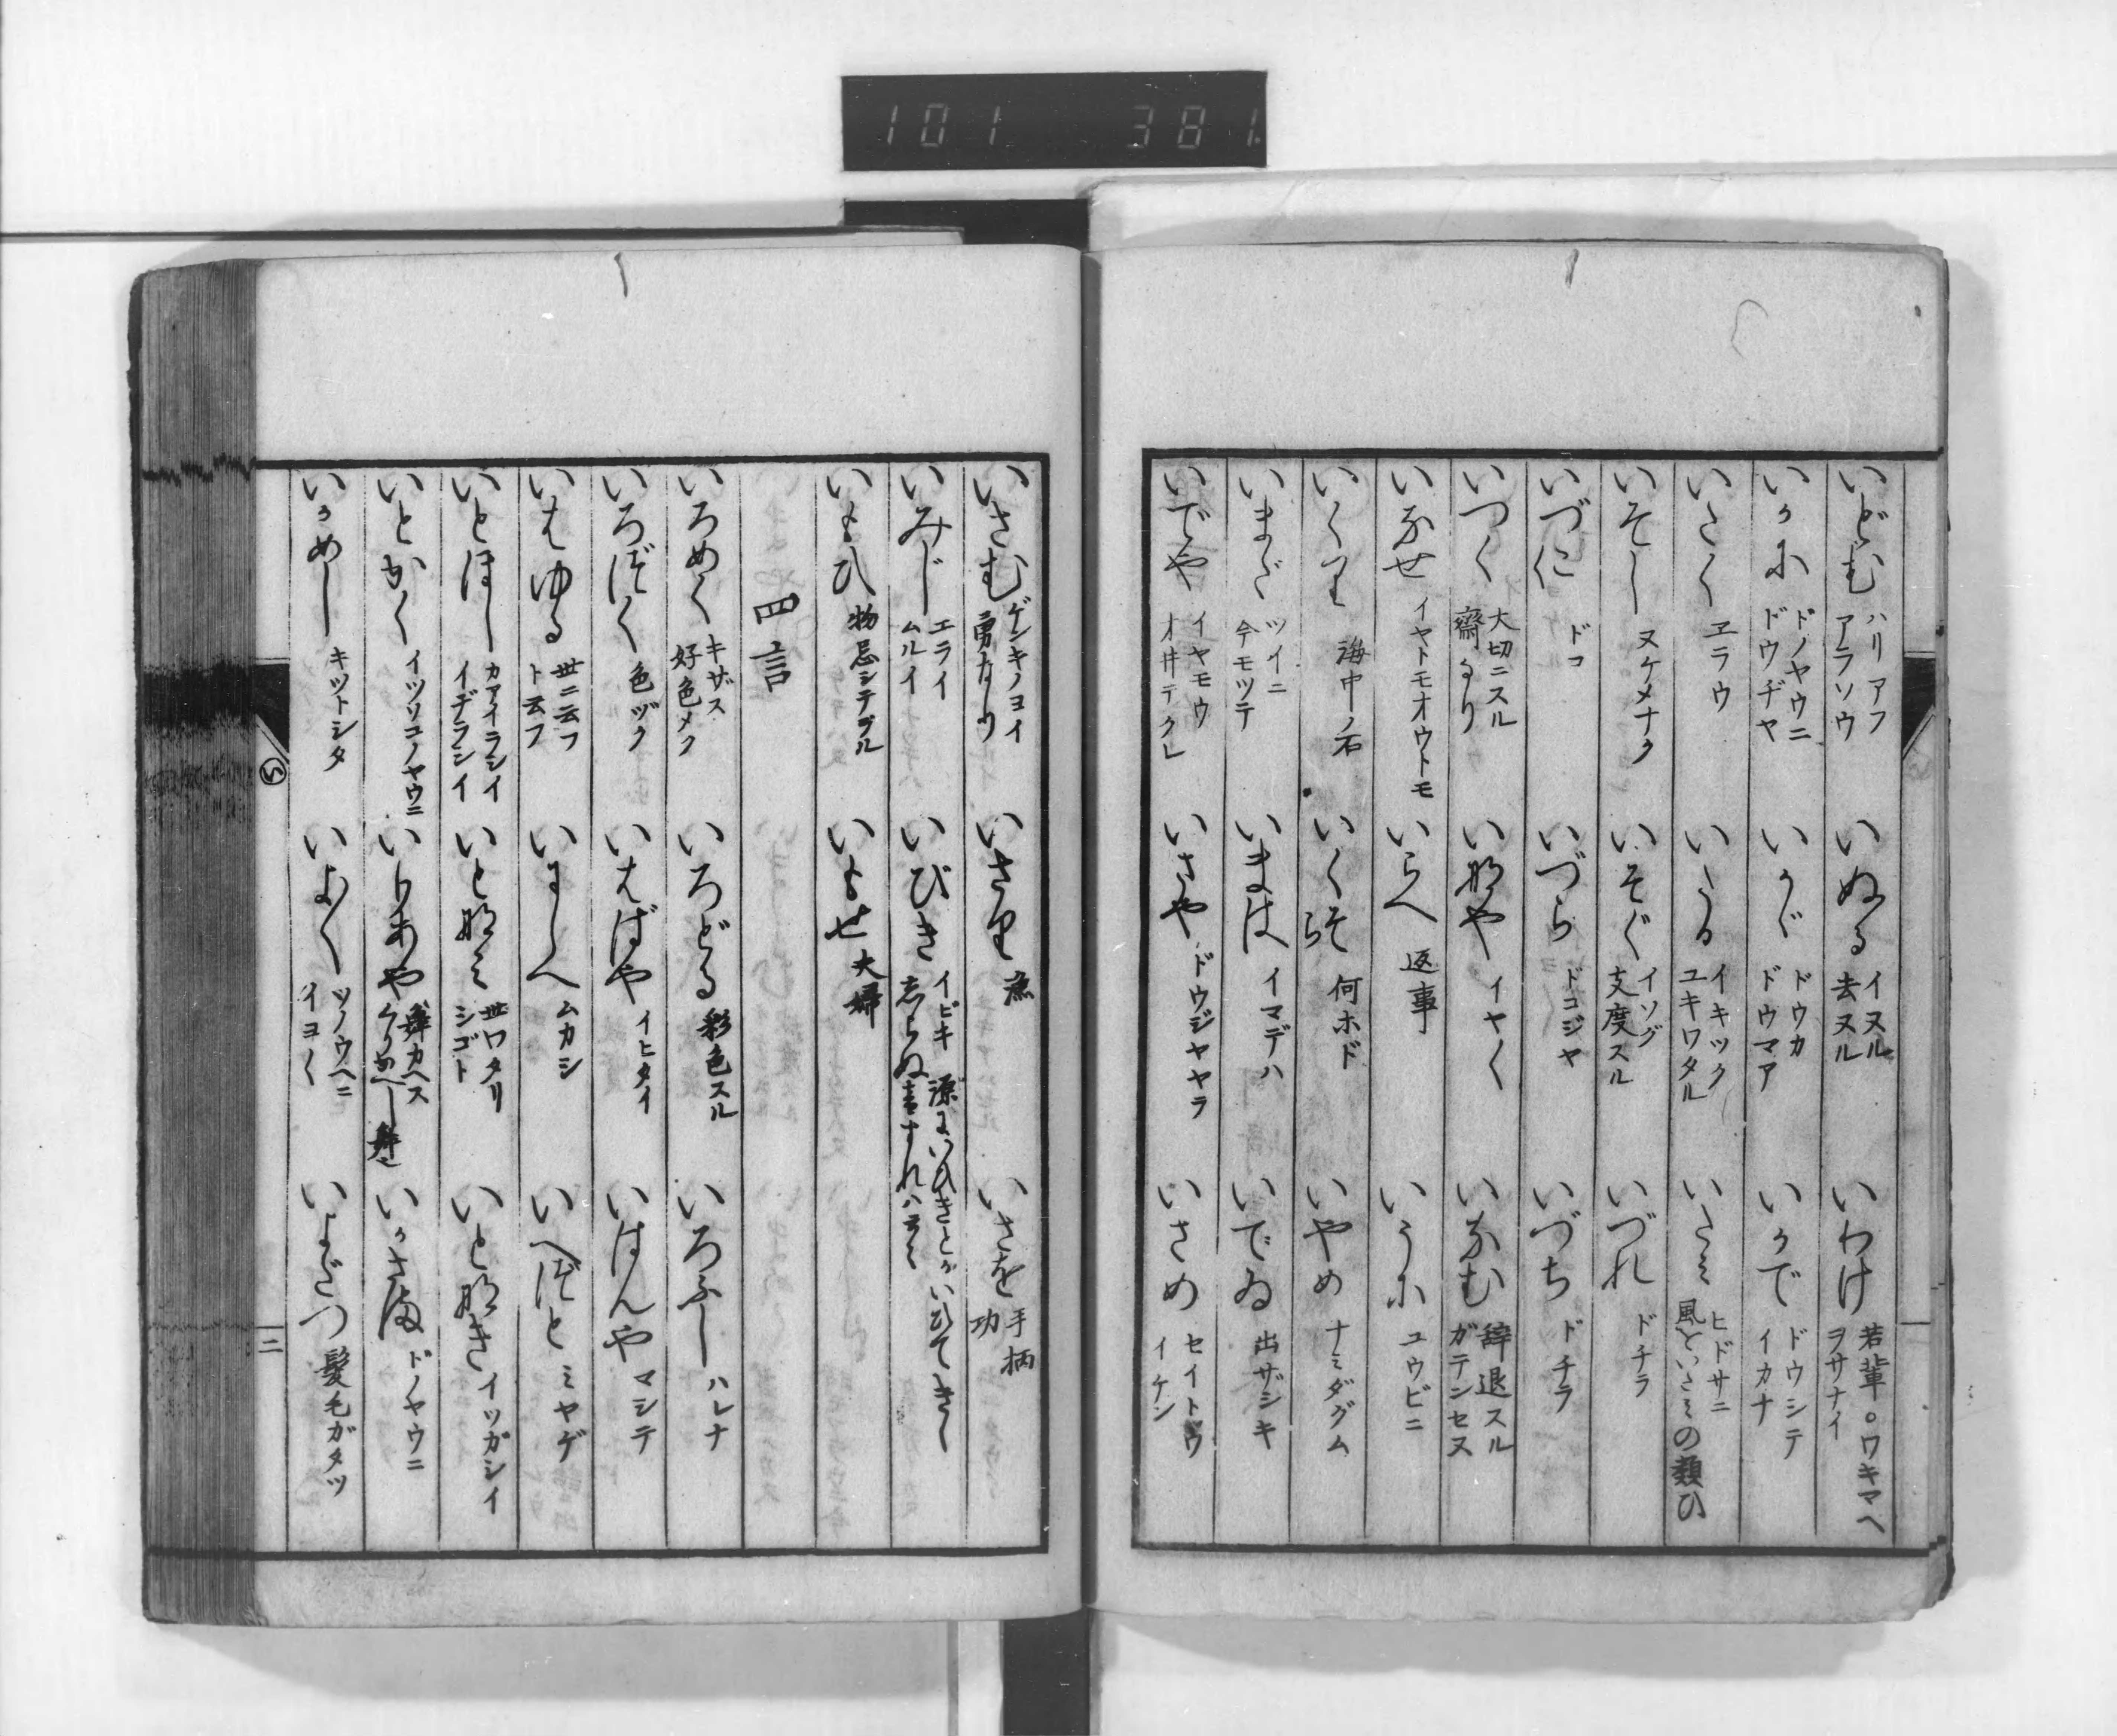 101 381
いどむ ハリアフ アラソウ いぬる イヌル 去ヌル いわけ 若輩○ワキマヘ ヲサナイ
いかに ドノヤウニ ドウヂヤ いかゞ ドウカ ドウマア いかで ドウシテ イカナ
いたく ヱラウ いたる イキツク ユキワタル いたミ ヒドサニ 風をいたミの類ひ
いそし ヌケメナク いそぐ イソグ 支度スル いづれ ドチラ
いづこ ドコ いづら ドコジヤ いづち ドチラ
いつく 大切ニスル 齋なり いなや イヤ〱 いなむ 辞退スル ガテンセヌ
いなせ イヤトモオウトモ いらへ 返事 いうに ユウビニ
いくり 海中ノ石 いくそ 何ホド いやめ ナミダグム
いまだ ツイニ 今モツテ いまは イマデハ いでゐ 出ザシキ
いでや イヤモウ オ井テクレ いさや ドウジヤヤラ いさめ セイトウ イケン
いさむ ゲンキノヨイ 勇ナリ いさり 漁 いさを 手柄 功
いみじ エライ ムルイ いびき イビキ
いもひ 物忌シテヲル いもせ 夫婦
四言
いろめく キザス 好色メク いろどる 彩色スル いろふし ハレナ
いろづく 色ヅク いはばや イヒタイ いはんや マシテ
いはゆる 世ニ云フ ト云フ いにしへ ムカシ いへづと ミヤゲ
いとほし カアイラシイ イヂラシイ いとなミ 世ワタリ シゴト いとなき イツガシイ
いとかく イツソコノヤウニ いりあや 舞カヘス いかさま ドノヤウニ
いかめし キツトシタ いよ〱 ソノウヘニ イヨ〱 いよだつ 髪毛ガタツ
い
二